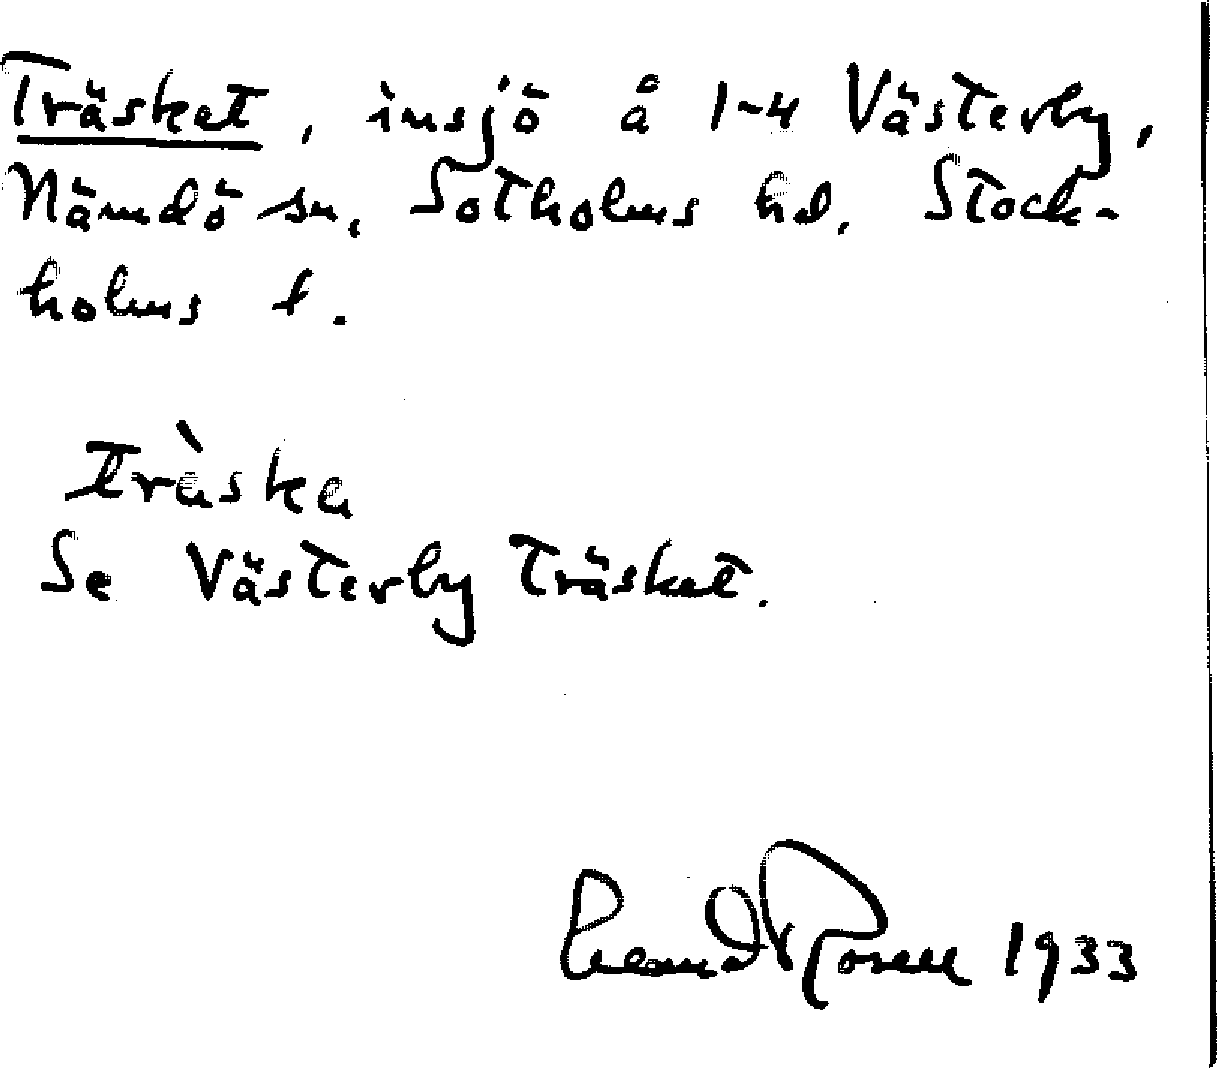 Träsket, insjö å 1-4 Västerby,
Nämdö sn, Sotholms hd, Stock-
holms l.
träska
Se Västerby träsket.
1933